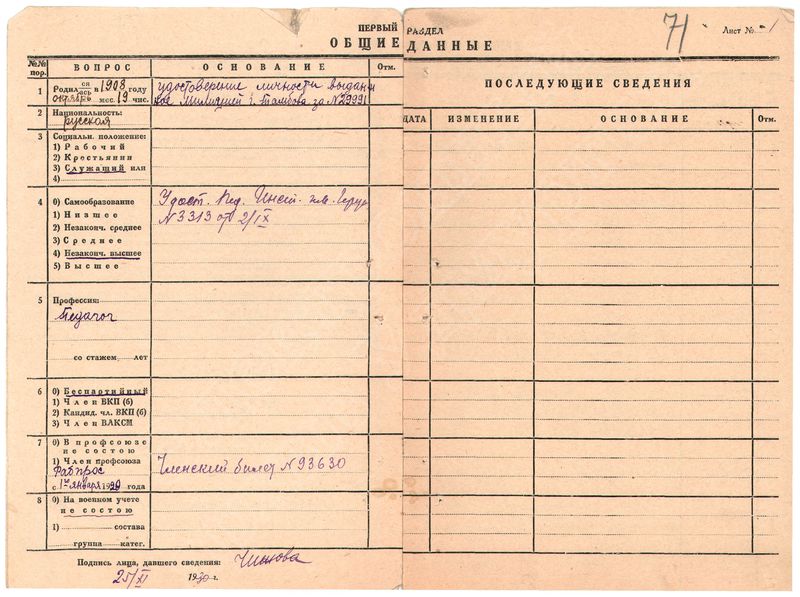 ПЕРВЫЙ РАЗДЕЛ
ОБЩИЕ ДАННЫЕ
71
Лист №
1
№№ пор.
ВОПРОС
ОСНОВАНИЕ
Отм.
1
Родил ся
ась в 1908 году
октябрь мес. 19 чис.
удостоверение личности выдан
ное Милицией г. Тамбова за №29991
2
Национальность:
русская
3
Социальн. положение:
1) Рабочий
2) Крестьянин
3) Служащий или
4)
4
0) Самообразование
1) Низшее
2) Незаконч. среднее
3) Среднее
4) Незаконч. высшее
5) Высшее
Удост. Пед. Инст. им. Герце
№3313 от 2/IX
5
Профессия:
Педагог
со стажем лет
6
0) Беспартийный
1) Член ВКП (б)
2) Кандид. чл. ВКП (б)
3) Член ВЛКСМ
7
0) В профсоюзе
не состою
1) Член профсоюза
Рабпрос
с 1го января 1929 года
Членский билет №93630
8
0) На военном учете
не состою
1) состава
группа катег.
Подпись лица, давшего сведения:
25/XI 1930 г.
ПОСЛЕДУЮЩИЕ СВЕДЕНИЯ
ДАТА
ИЗМЕНЕНИЕ
ОСНОВАНИЕ
Отм.